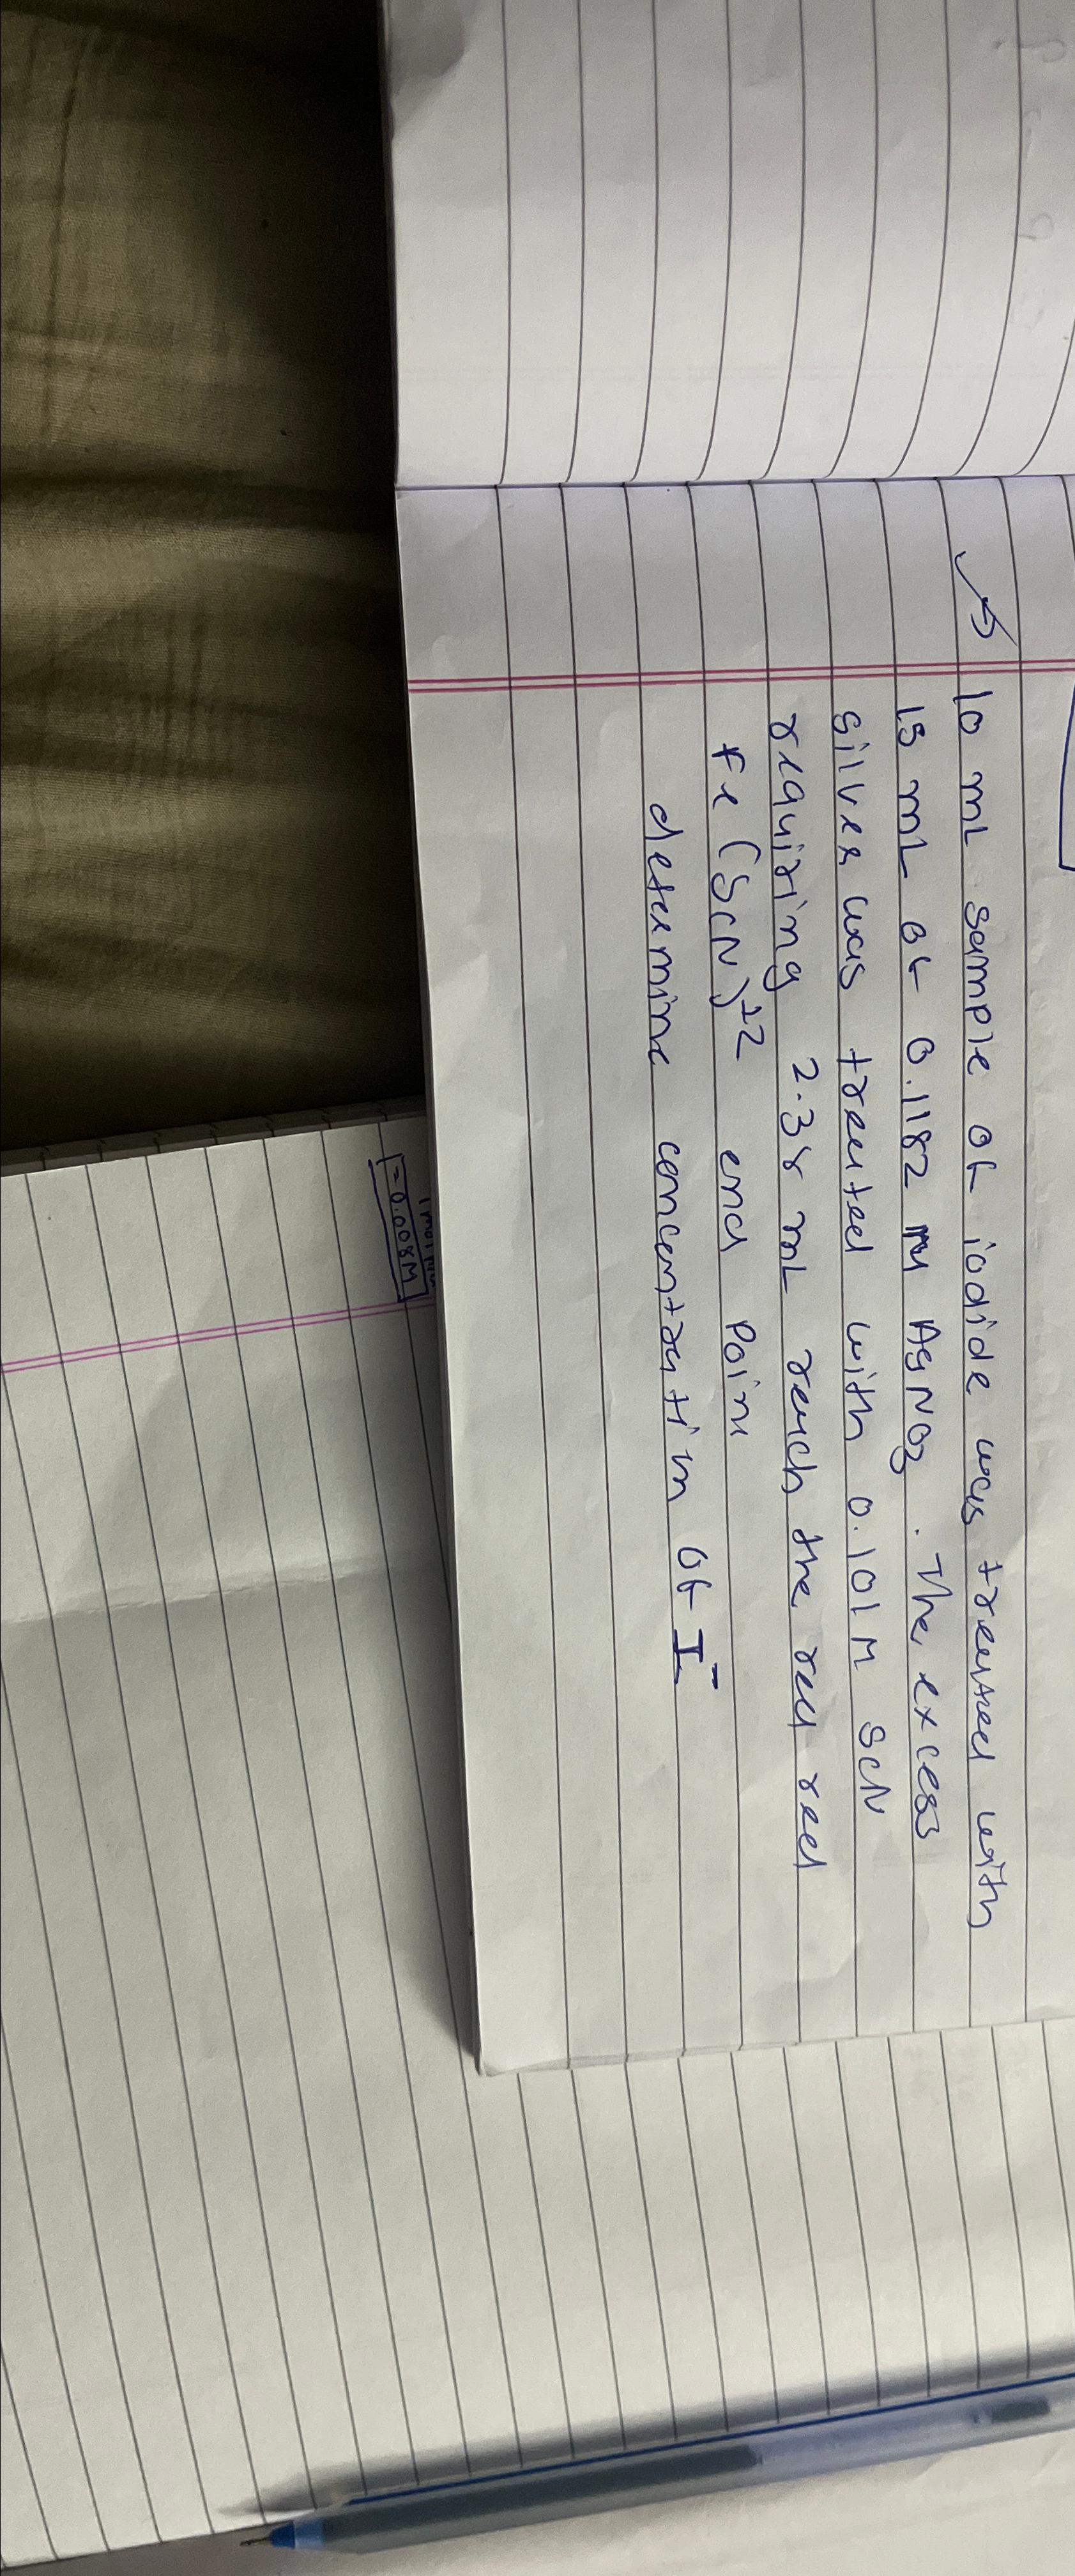 10 mL sample of iodide was treated with
15 mL of 0.1182 M AgNO3 . The excess
silver was treated with 0.101 M SCN
requiring 2.38 mL reach the red red
Fe(SCN)+2 end Poin
determine concentration of I-
= 0.008M